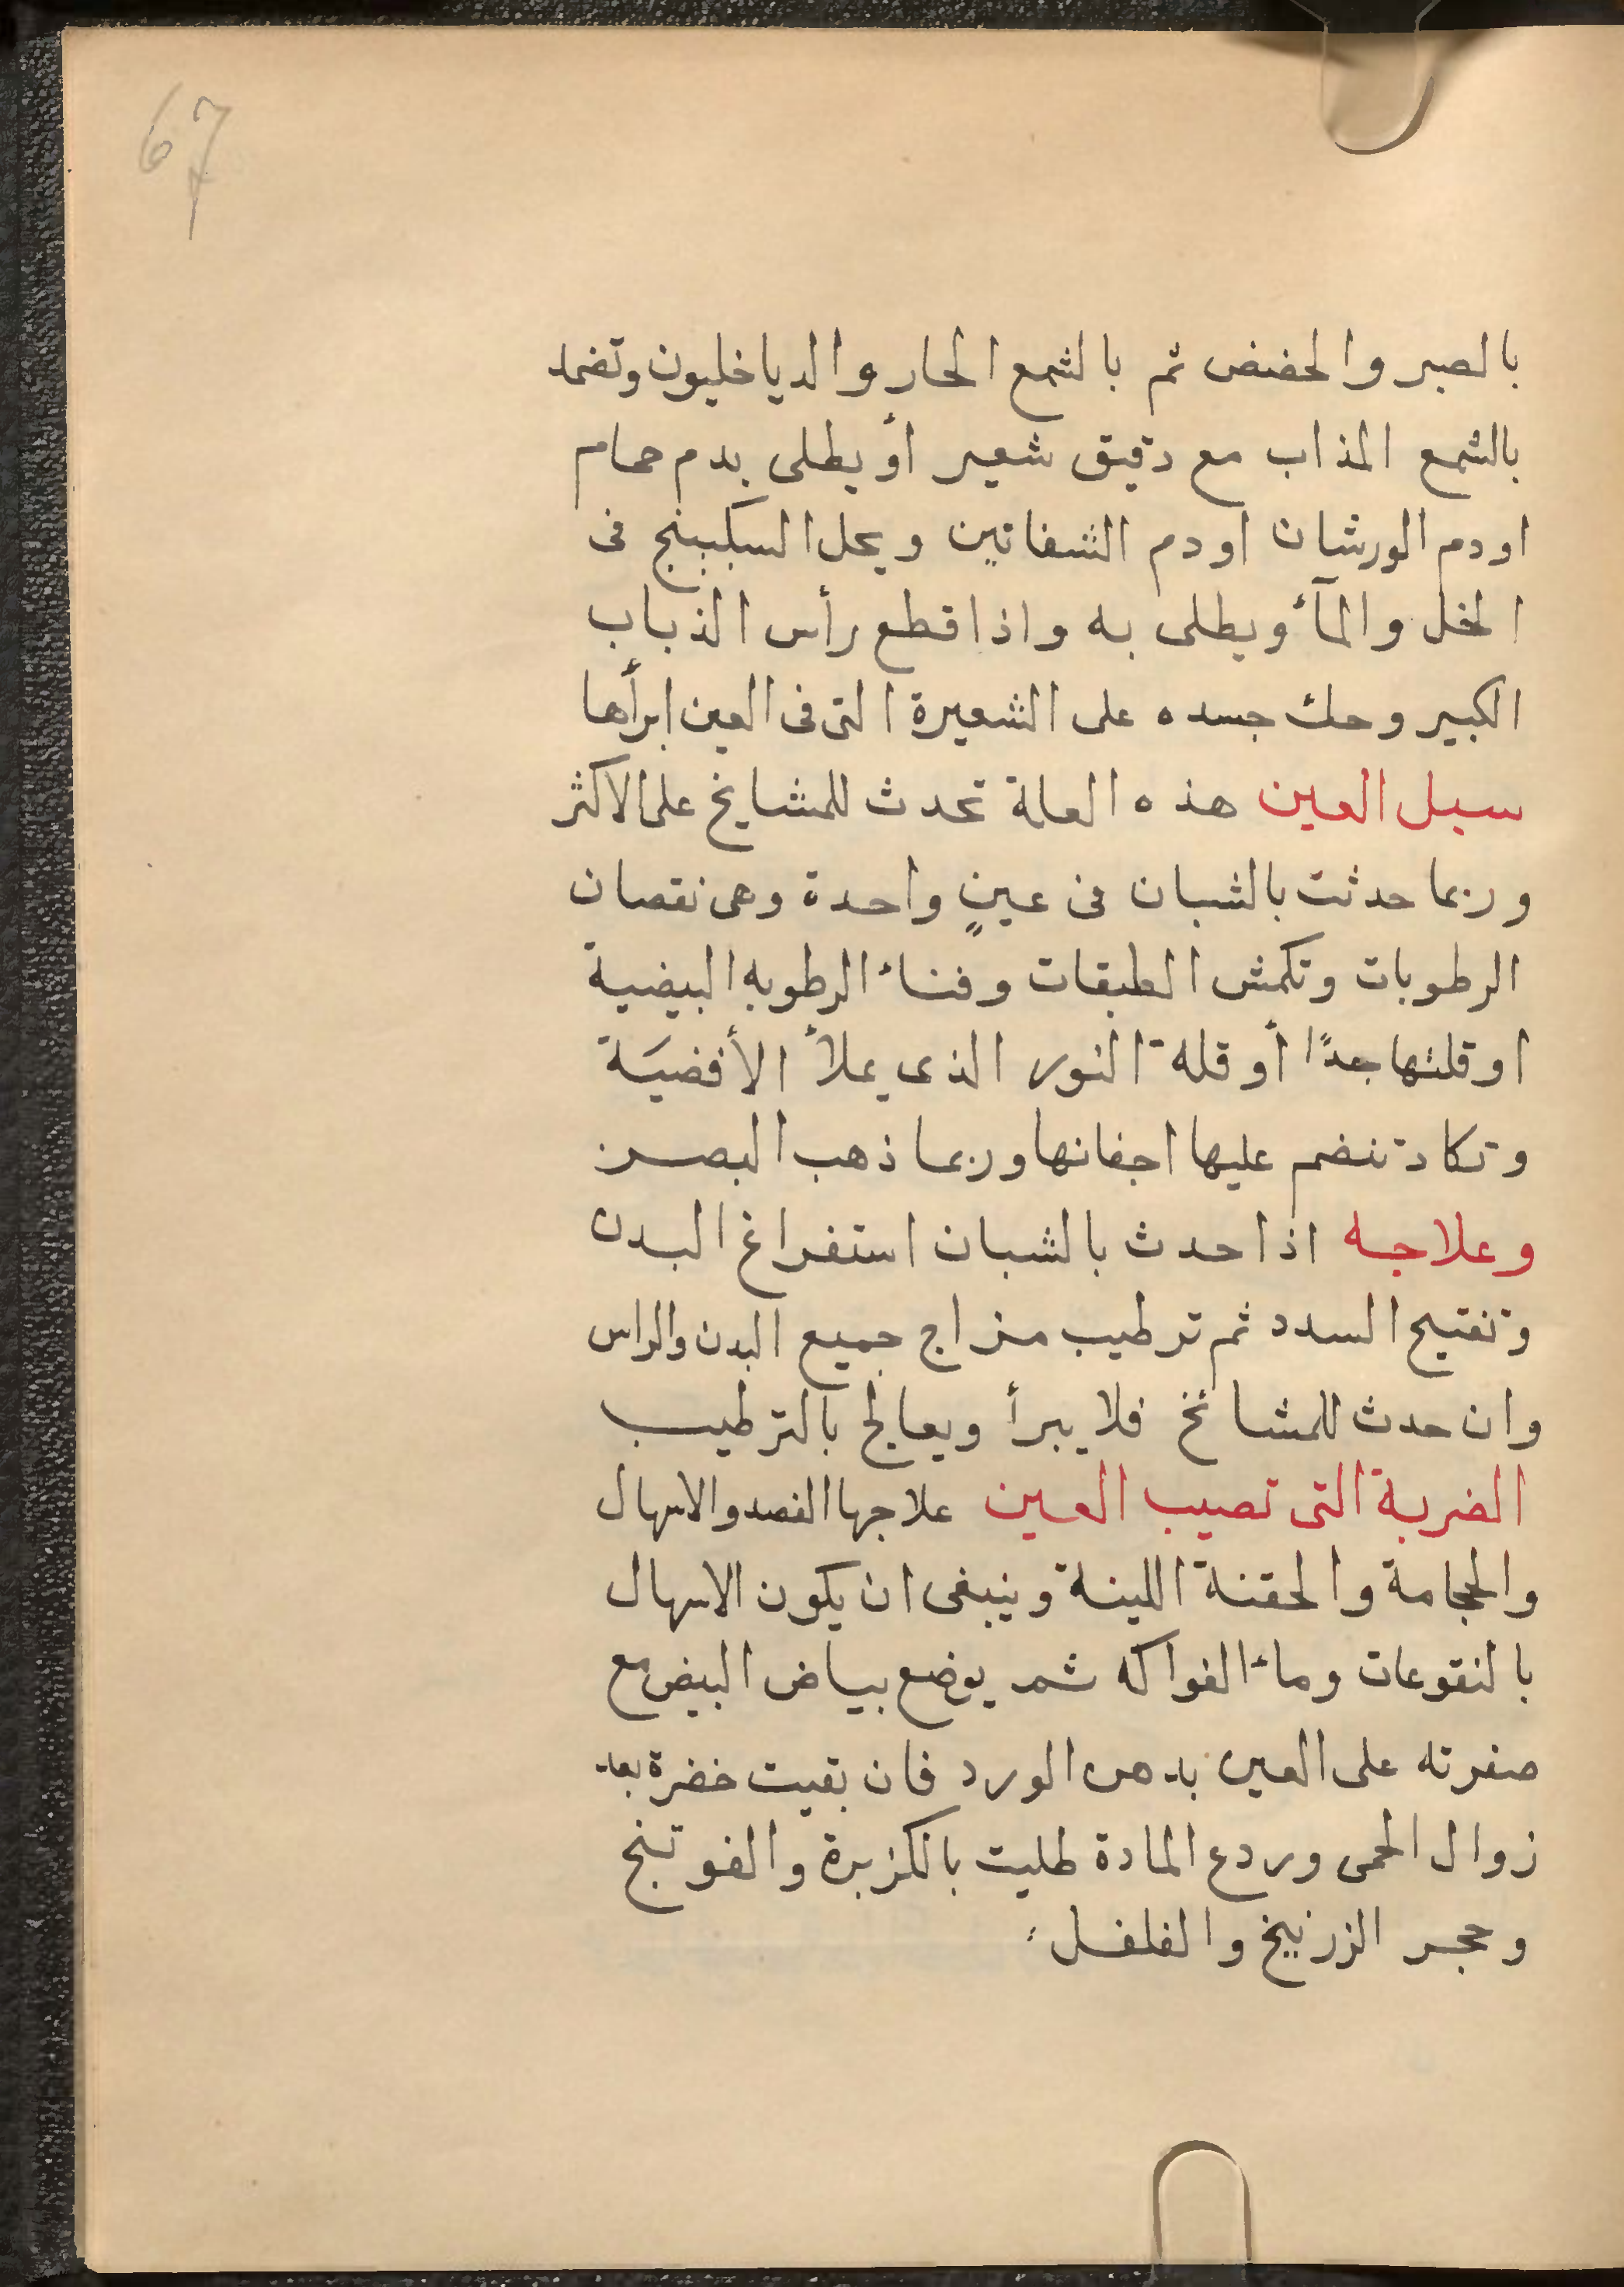 67
بالصبر والحضض ثم بالشمع الحار والدياخليون وتضمد
بالشمع المذاب مع دقيق شعير أو يطلى بدم حمام
او دم الورشان او دم الشفانين ويحل السكبينج فى
الخل والمآء ويطلى به واذا قطع رأس الذباب
الكبير وحك جسده على الشعيرة التى فى العين ابرأها
سبل العين هذه العلة تحدث للمشايخ على الاكثر
وربما حدثت بالشبان فى عينٍ واحدة وهى نقصان
الرطوبات وتكمش الطبقات وفناء الرطوبه البيضية
او قلتها جدًا أو قلة النور الذى يملأ الأفضيَة
وتكاد تنضم عليها اجفانها وربما ذهب البصر
وعلاجه اذا حدث بالشبان استفراغ البدن
وتفتيح السدد ثم ترطيب مزاج جميع البدن والراس
وان حدث للمشائخ فلا يبرأ ويعالج بالترطيب
الضربة التى تصيب العين علاجها الفصد والاسهال
والحجامة والحقنة اللينة وينبغى ان يكون الاسهال
بالنقوعات وماء الفواكه ثم يوضع بياض البيض مع
صفرته على العين بدهن الورد فان بقيت خضرة بعد
زوال الحمى وردع المادة طليت بالكزبرة والفوتنج
وحجر الزرنيخ والفلفل